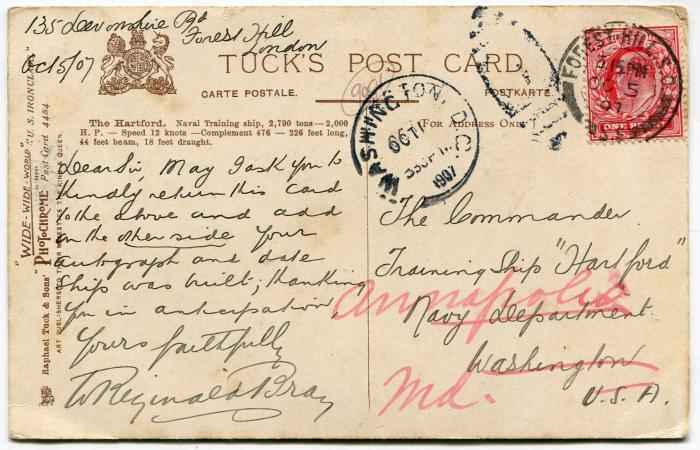 135 Devonshire Rd
Forest Hill
London
Oc/5/07
TUCK'S POST CARD
CARTE POSTALE.
POSTKARTE.
The Hartford. Naval Training ship, 2,790 tons—2,000
H. P. — Speed 12 knots —Complement 476 — 226 feet long,
44 feet beam, 18 feet draught.
(For Address Only)
Dear Sir, May I ask you to
kindly return this card
to the above and add
on the other side your
autograph and date
ship was built; thanking
you in anticipation,
Yours faithfully
W Reginald Bray
The Commander
Training Ship "Hartford"
Navy Department
Washington
U.S.A.
Annapolis
Md.
WASHINGTON, D.C.
OCT
1907
FOREST HILL S.O.
5 PM
OC 5
07
"WIDE-WIDE-WORLD" "U. S. IRONCLADS"
Raphael Tuck & Sons' "PHOTOCHROME" Post Card 4484
ART PUBLISHERS TO THEIR MAJESTIES THE KING & QUEEN.